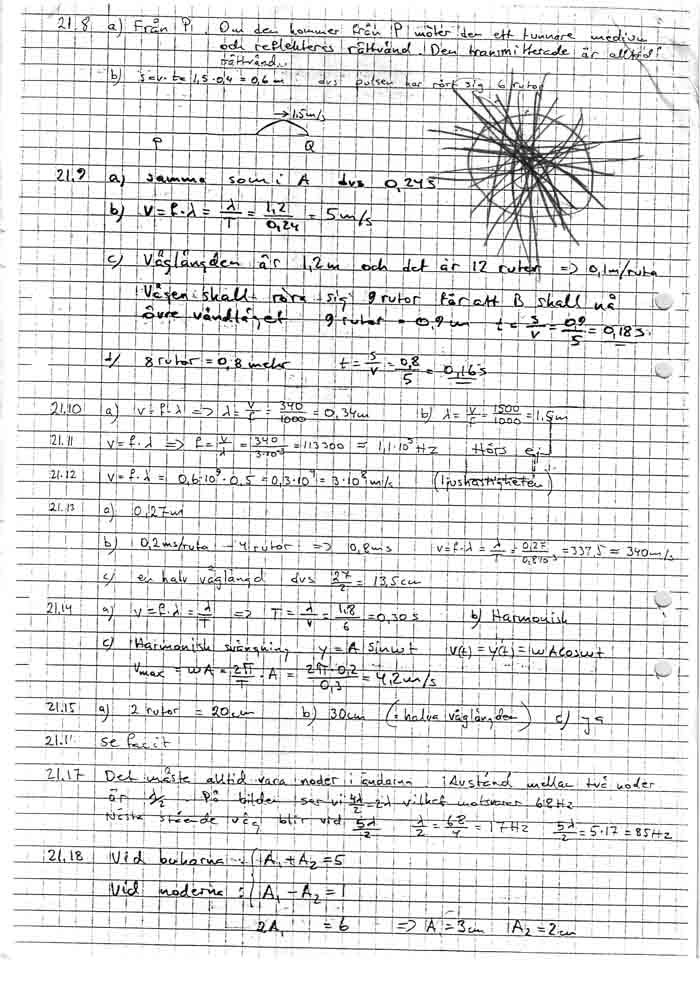 21.8 a) Från P. Om den kommer från P möter den ett tunnare medium
och reflekteras rättvänd. Den transmitterade är alltid
rättvänd.
b) s=v·t=1,5·0,4=0,6m dvs pulsen har rört sig 6 rutor
→1,5m/s
P Q
21.9 a) samma som i A dvs 0,24s
b) v=f·λ=λ/T=1,2/0,24=5m/s
c) Våglängden är 1,2m och det är 12 rutor => 0,1m/ruta
Vågen skall röra sig 9 rutor för att B skall nå
övre vändläget 9 rutor = 0,9m t=s/v=0,9/5=0,18s
d) 8 rutor=0,8 meter t=s/v=0,8/5=0,16s
21.10 a) v=f·λ => λ=v/f=340/1000=0,34m b) λ=v/f=1500/1000=1,5m
21.11 v=f·λ => f=v/λ=340/3·10⁻³=113300≈1,1·10⁵Hz Hörs ej
21.12 v=f·λ=0,6·10⁹·0,5=0,3·10⁹=3·10⁸m/s (ljushastigheten)
21.13 a) 0,27m
b) 0,2ms/ruta - 4 rutor => 0,8ms v=f·λ=λ/T=0,27/0,8·10⁻³=337,5≈340m/s
c) en halv våglängd dvs 27/2=13,5cm
21.14 a) v=f·λ=λ/T => T=λ/v=1,8/6=0,30s b) Harmonisk
c) Harmonisk svängning y=A sinωt v(t)=y'(t)=ωAcosωt
Vmax=ωA=2π/T·A=2π·0,2/0,3=4,2m/s
21.15 a) 2 rutor = 20cm b) 30cm (=halva våglängden) c) ja
se facit
21.17 Det måste alltid vara noder i ändarna. Avstånd mellan två noder
är λ/2. På bilden ser vi 4λ/2=2λ vilket motsvarar 68Hz
Nästa stående våg blir vid 5λ/2 λ/2=68/4=17Hz 5λ/2=5·17=85Hz
21.18 Vid bukarna: A₁+A₂=5
Vid noderna: A₁-A₂=1
2A₁ =6 => A₁=3cm A₂=2cm